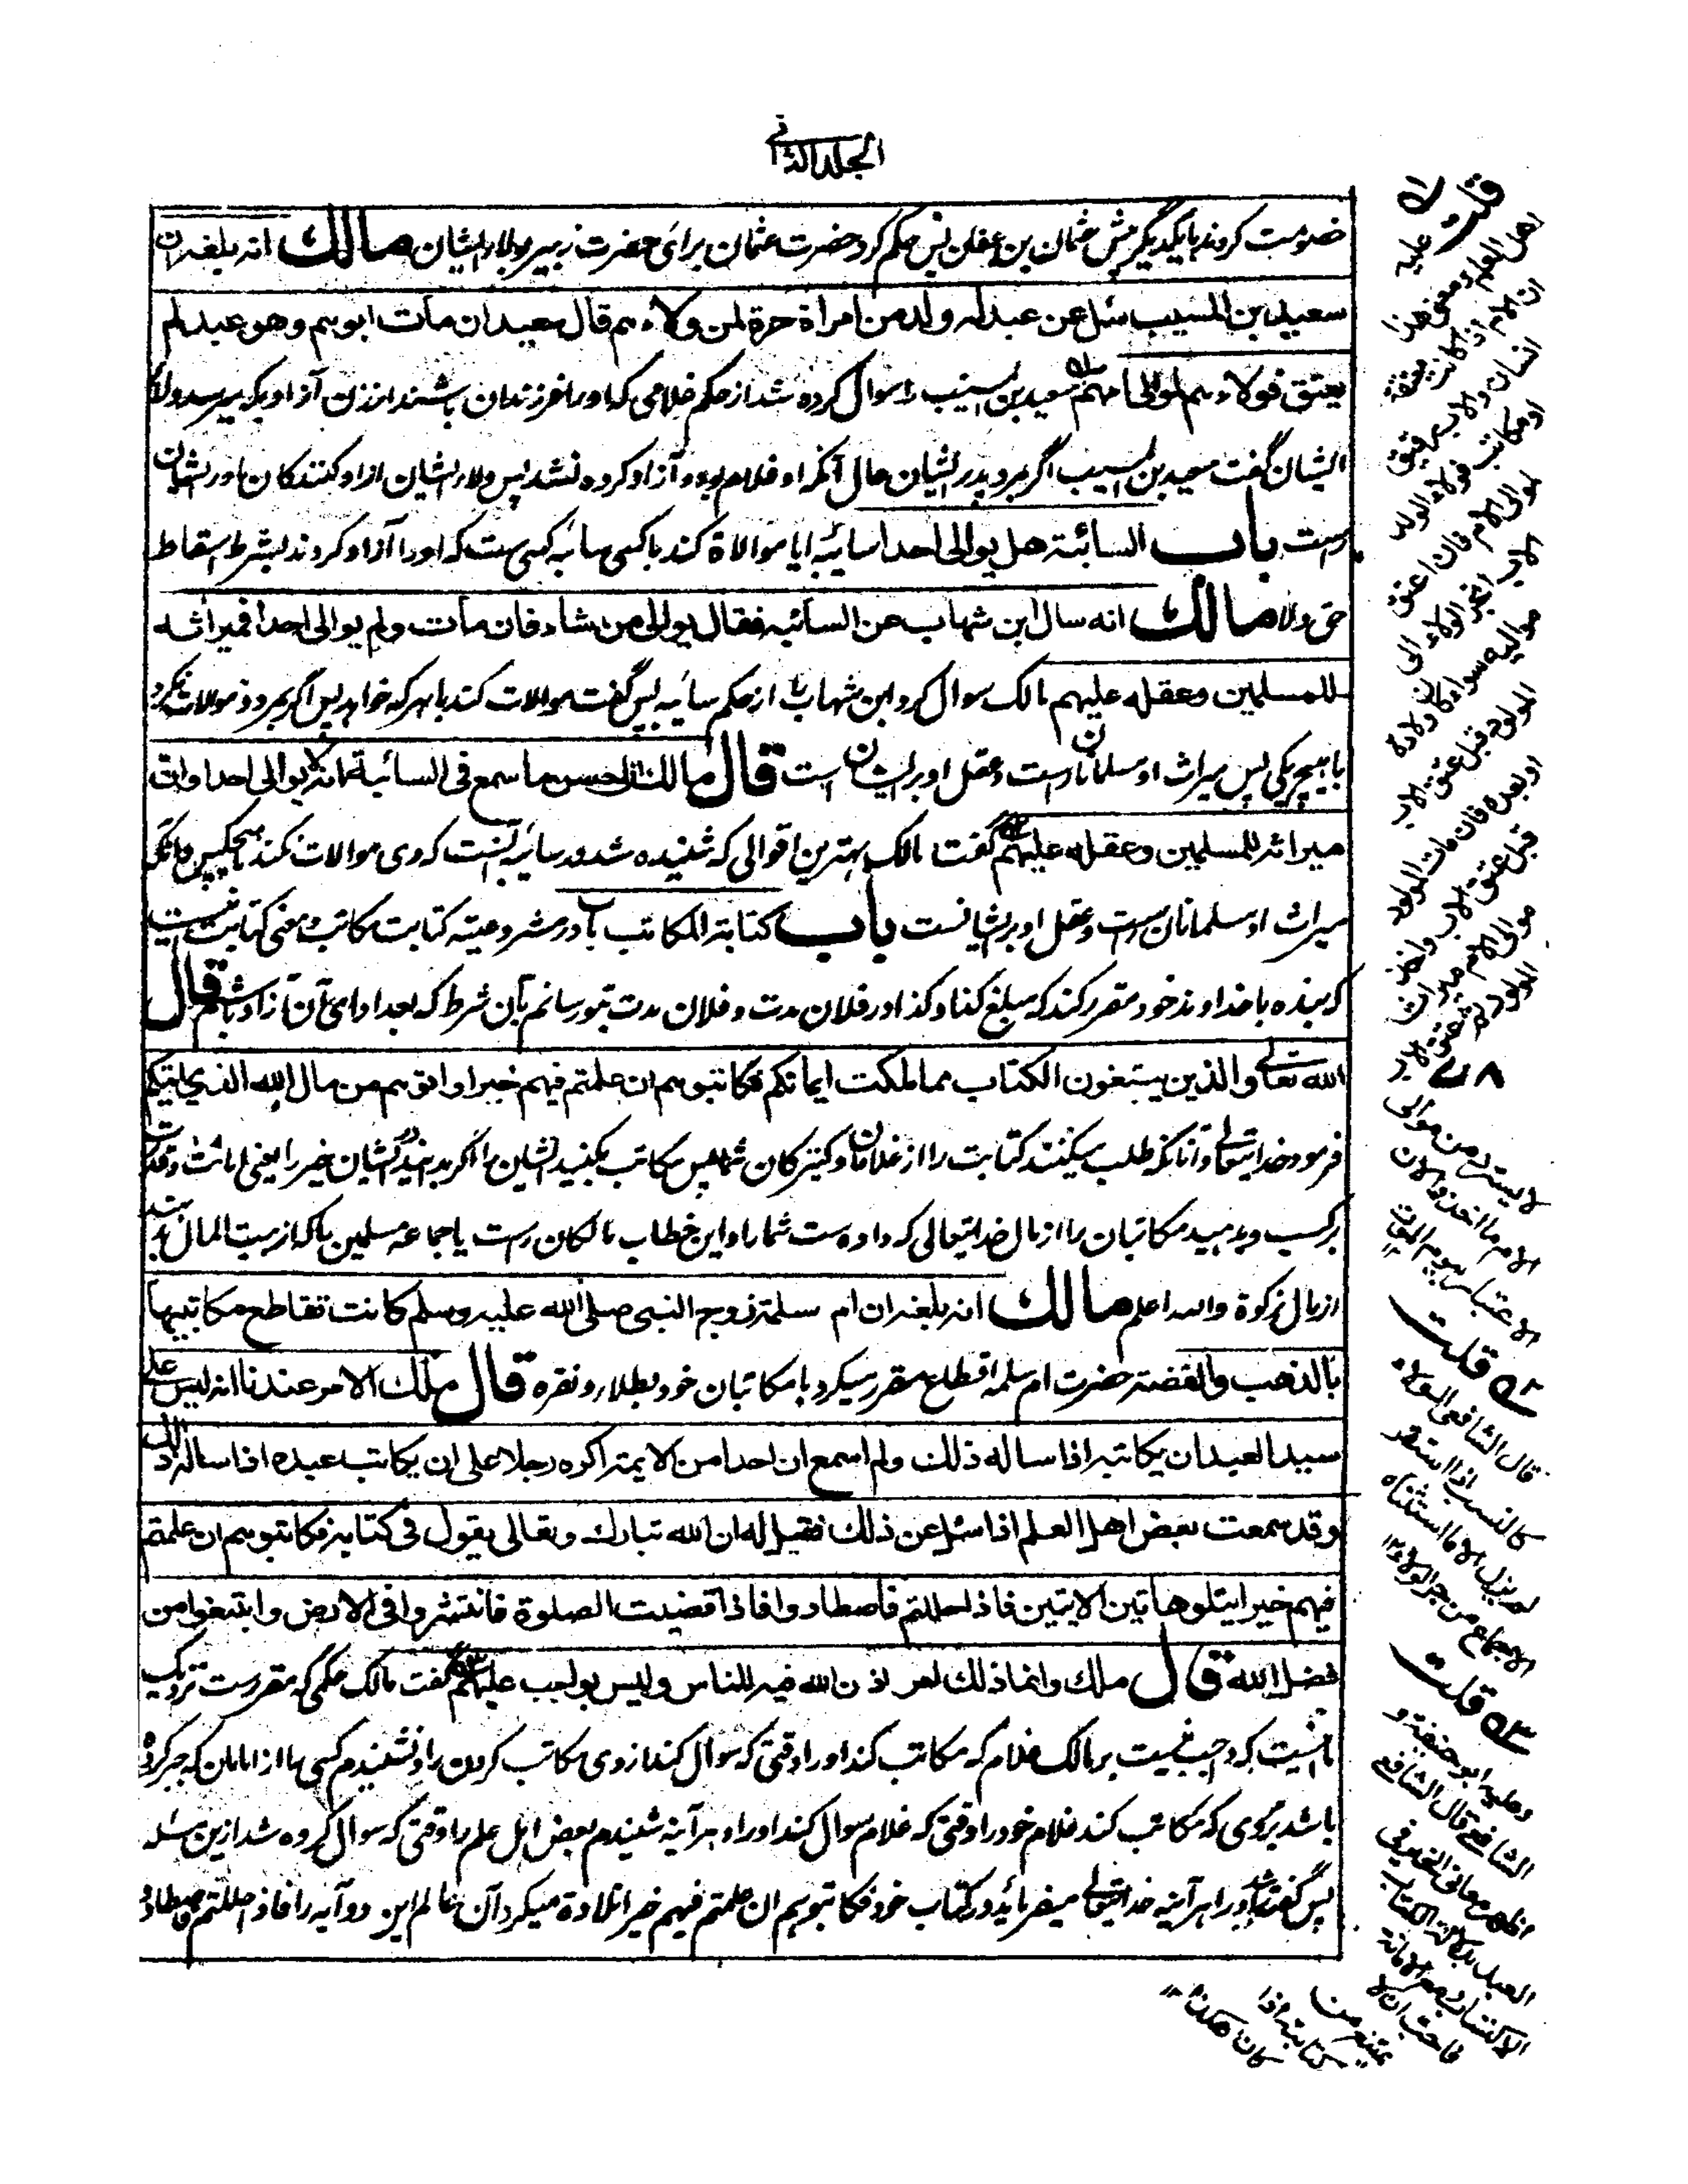 الجلد الثانی
خصومت کردند با یکدیگر پیش عثمان بن عفان پس حکم کرد حضرت عثمان برای حضرت زبیر بولاء ایشان مالك انه بلغه ان
سعید بن المسیب سئل عن عبد له ولد من امراة حرة لمن ولاءهم قال سعید ان مات ابوهم وهو عبد لم
یعتق فولاءهم لموالی امهم سعید بن مسیب را سوال کرده شد از حکم غلامی که او را فرزندان باشند از زن آزاد بکه میرسد ولاء
ایشان گفت سعید بن المسیب اگر بمرد پدر ایشان حال آنکه او غلام بود و آزاد کرده نشد پس ولاء ایشان آزاد کنندکان مادر ایشان
راست باب السائبة هل یوالی احدا سائبه ایا موالاة کند با کسی سائبه کسی ست که اورا آزاد کردند بشرط اسقاط
حق ولا مالك انه سال ابن شهاب عن السائبه فقال یوالی من شاء فان مات ولم یوالی احدا فمیراثه
للمسلمین وعقله علیهم مالک سوال کرد ابن شهاب را از حکم سائبه پس گفت موالات کند با هر که خواهد پس اگر بمرد و موالات نکرد
با هیچ یکی پس میراث او مسلمانان راست و عقل او بر ایشان است قال مالك ان احسن ما سمع فی السائبة انه لا یوالی احدا وان
میراثه للمسلمین وعقله علیهم گفت مالک بهترین اقوالی که شنیده شد در سائبه آنست که وی موالات نکند با هیچکس و آنکه
میراث او مسلمانان راست و عقل او بر ایشانست باب کتابة المکاتب باب در مشروعیة کتابت مکاتب و معنی کتابت نیست
که بنده با خداوند خود مقرر کند که مبلغ کذا و کذا در فلان مدت و فلان مدت بتو رسانم بآن شرط که بعد ادای آن آزاد باشم قال
الله تعالی والذین یبتغون الکتاب مما ملکت ایمانکم فکاتبوهم ان علمتم فیهم خیرا واتوهم من مال الله الذی اتیکم
فرمود خدایتعالی و آنانکه طلب میکنند کتابت را از غلامان و کنیزکان شما پس مکاتب بکنید ایشان را اگر بدانید در ایشان خیر را یعنی امانت و قدرت
بر کسب و بدهید مکاتبان را از مال خدایتعالی که داده ست شما را و این خطاب مالکان راست یا جماعه مسلمین را که از بیت المال بدهند
از مال زکوة والله اعلم مالك انه بلغه ان ام سلمة زوج النبی صلی الله علیه وسلم کانت تقاطع مکاتبیها
بالذهب والفضة حضرت ام سلمه اقطاع مقرر میکرد با مکاتبان خود بطلا و نقره قال ملك الامر عندنا انه لیس علی
سید العبد ان یکاتبه اذا ساله ذلك ولم اسمع ان احدا من الایمة اکره رجلا علی ان یکاتب عبده اذا ساله ذلك
وقد سمعت بعض اهل العلم اذا سئل عن ذلك فقیل له ان الله تبارك وتعالی یقول فی کتابه فکاتبوهم ان علمتم
فیهم خیرا یتلو هاتین الایتین فاذا حللتم فاصطادوا فاذا قضیت الصلوة فانتشروا فی الارض وابتغوا من
فضل الله قال ملك وانما ذلك امر اذن الله فیه للناس ولیس بواجب علیهم گفت مالک حکمی که مقررست نزدیک
ما نیست که واجب نیست بر مالک غلام که مکاتب کند او را وقتی که سوال کند از وی مکاتب کردن را و نشنیدم کسی را از امامان که جبر کرده
باشد مردی که مکاتب کند غلام خود را وقتی که غلام سوال کند او را و هر آینه شنیدم بعض اهل علم را وقتی که سوال کرده شد ازین مسئله
پس گفته شد او را هر آینه خدایتعالی میفرماید در کتاب خود فکاتبوهم ان علمتم فیهم خیرا تلاوة میکرد آن عالم این دو آیه را فاذا حللتم فاصطادوا
قلت
علیه اهل العلم ومعنی هذا
ان الام اذا کانت معتقة
او مکاتب فولاء الولد
لموالی الام فان اعتق
الاب انجر الولاء الی
موالیه سواء کان ولادة
المولود قبل عتق الاب
او بعده فان مات المولود
قبل عتق الاب واخذ
موالی الام میراث
المولود ثم عتق الاب
لا یسترد من موالی
الام ما اخذ والان
الاعتبار بیوم الموت
۵۲ قلت
قال الشافعی الولاء
کالنسب اذا استقر
لم یزل الا ما استثناه
الاجماع من جر الولاء ۱۲
۵۳ قلت
وعلیه ابو حنیفة و
الشافعی قال الشافعی
اظهر معانی الخیر فی
العبد بدلالة الکتاب
الاکتساب مع الامانة
فاحب ان لا
یمتنع من
کتابته اذا
کان هکذا ۱۲